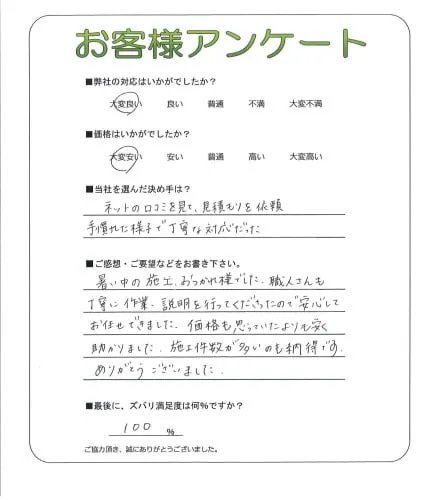 お客様アンケート
■弊社の対応はいかがでしたか?
大変良い 良い 普通 不満 大変不満
■価格はいかがでしたか?
大変安い 安い 普通 高い 大変高い
■当社を選んだ決め手は?
ネットの口コミを見て、見積もりを依頼
手慣れた様子で丁寧な対応だった
■ご感想・ご要望などをお書き下さい。
暑い中の施工、おつかれ様でした。職人さんも
丁寧に作業、説明を行ってくださったので安心して
お任せできました。価格も思っていたよりも安く
助かりました。施工件数が多いのも納得です。
ありがとうございました。
■最後に、ズバリ満足度は何%ですか?
100 %
ご協力頂き、誠にありがとうございました。